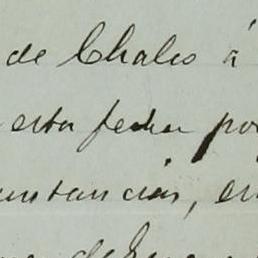 de Chalco á
esta fecha po
unstancias, en